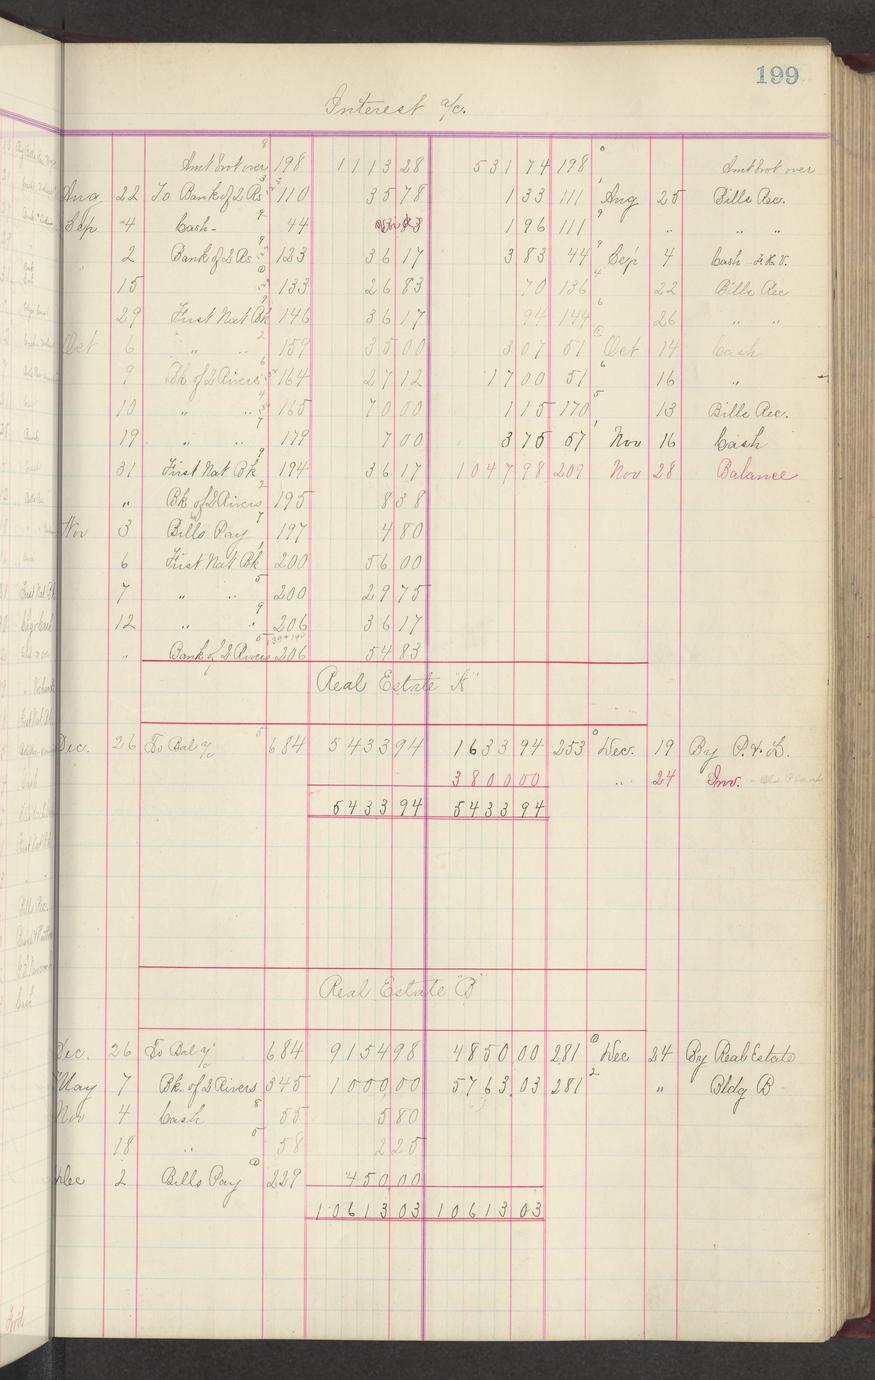 199
Interest a/c.
Amt brot over 198 1113 28 531 74 198 Amt brot over
Aug 22 To Bank of 2 Rs 110 35 78 1 33 111 Aug 25 Bills Rec.
Sep 4 Cash - 44 1 96 111 " " "
" 2 Bank of 2 Rs 123 36 17 3 83 44 Sep 4 Cash
15 133 26 83 70 136 22 Bills Rec
29 First Nat Bk 146 36 17 94 144 26 " "
Oct 6 " " 159 35 00 3 07 51 Oct 14 Cash
9 Bk of 2 Rivers 164 27 12 17 00 51 16 "
10 " " 165 70 00 1 15 170 13 Bills Rec.
19 " " 179 7 00 3 75 57 Nov 16 Cash
31 First Nat Bk 194 36 17 1047 98 209 Nov 28 Balance
" Bk of 2 Rivers 195 8 38
Nov 3 Bills Pay 197 4 80
6 First Nat Bk 200 56 00
7 " " 200 29 75
12 " " 206 36 17
" Bank of 2 Rivers 206 54 83
Real Estate "A"
Dec. 26 To Bal a/c 684 5433 94 1633 94 253 Dec. 19 By P. & L.
3800 00 " 24 Inv. - Old Plant
5433 94 5433 94
Real Estate "B"
Dec. 26 To Bal a/c 684 9154 98 4850 00 281 Dec 24 By Real Estate
May 7 Bk. of 2 Rivers 345 1000 00 5763 03 281 " Bldg B
Nov 4 Cash 55 5 80
18 " 58 2 25
Dec 2 Bills Pay 229 450 00
10613 03 10613 03